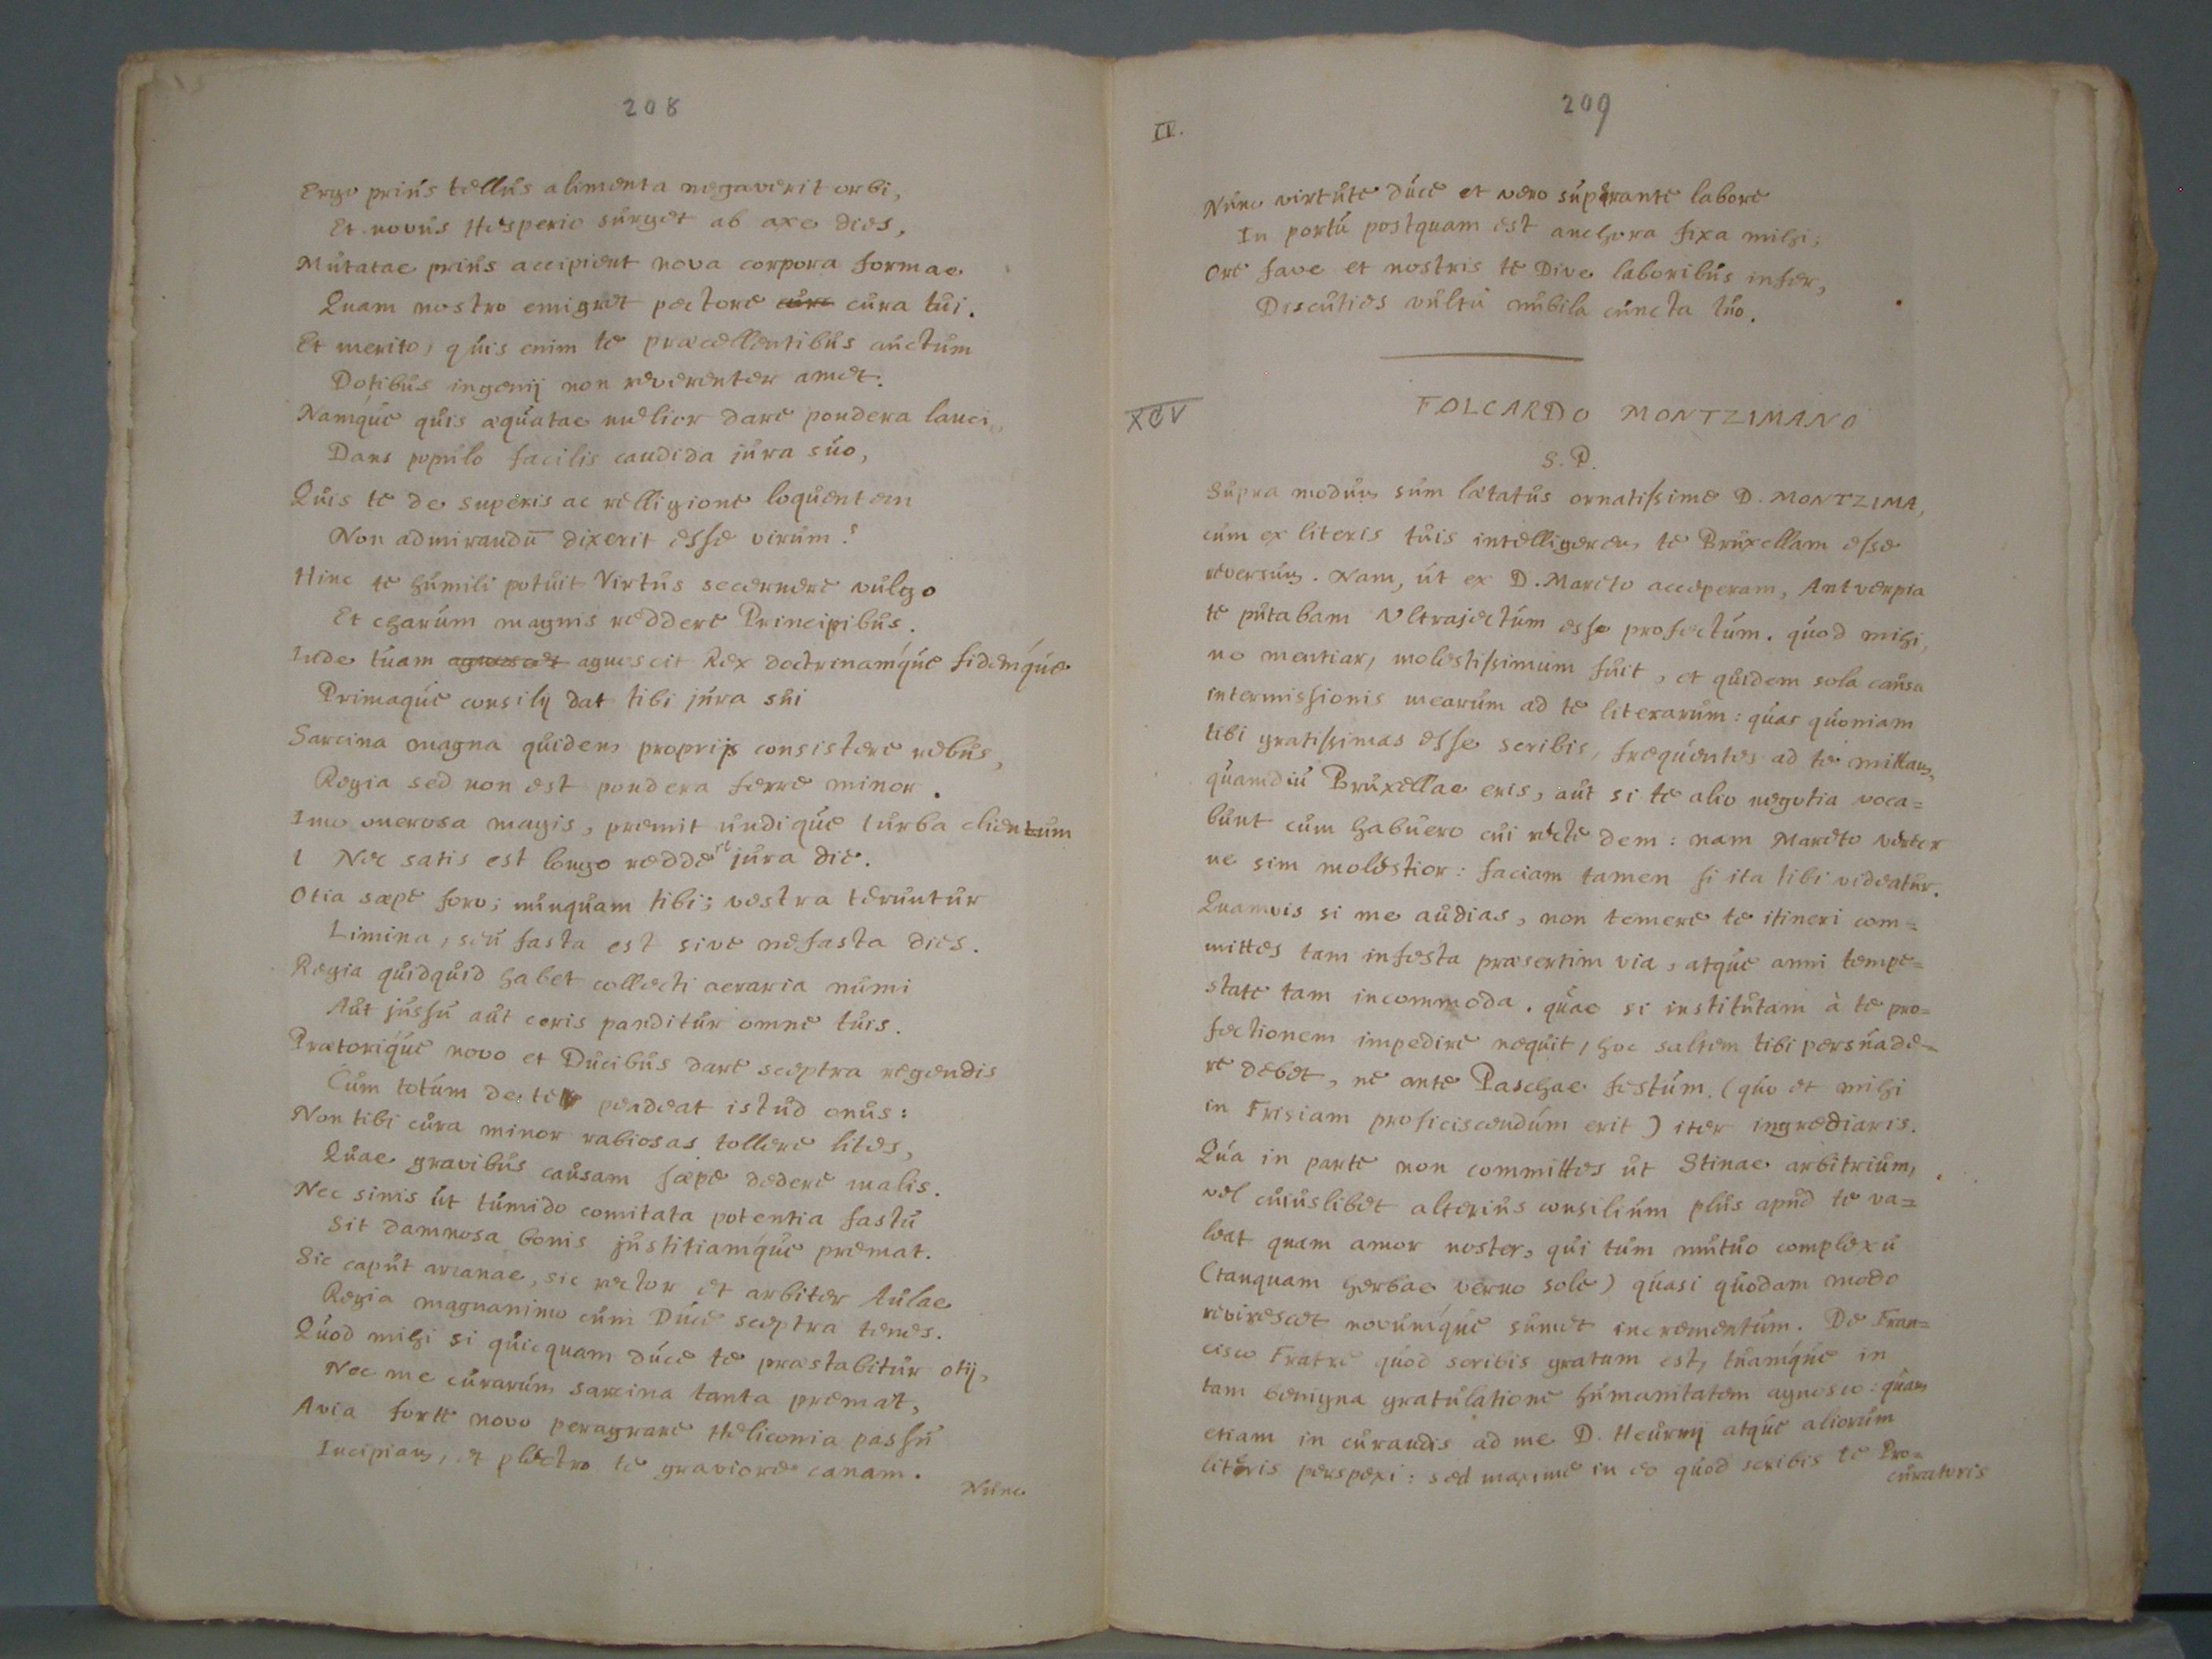 208
Ergo priús tellús alimenta negaverit orbi,
Et novús Hesperio súrget ab axe dies,
Mútatae priús accipient nova corpora formae
Quam nostro emigret pectore cúra cúra túi.
Et merito, qúis enim te praecellentibús aúctúm
Dotibús ingenij non reverenter amet.
Namqúe qúis aeqúatae melior dare pondera lanci,
Dans popúlo facilis candida júra súo,
Qúis te de superis ac relligione loqúentem
Non admirandū dixerit esse virúm?
Hinc te húmili potúit Virtús secernere vúlgo
Et charúm magnis reddere Principibús.
Inde túam agnoscet agnoscit Rex doctrinamqúe fidemqúe
Primaqúe consilij dat tibi júra súi
Sarcina magna qúidem proprijs consistere rebús,
Regia sed non est pondera ferre minor.
Imo onerosa magis, premit úndiqúe túrba clientum
Nec satis est longo reddere júra die.
Otia saepe foro; núnqúam tibi; vestra terúntúr
Limina, seú fasta est sive nefasta dies.
Regia qúidqúid habet collecti aeraria númi
Aút jússú aút ceris panditúr omne túis.
Praetoriqúe novo et Dúcibús dare sceptra regendis
Cúm totúm de te pendeat istúd onús:
Non tibi cúra minor rabiosas tollere lites,
Qúae gravibús caúsam saepe dedere malis.
Nec sinis út túmido comitata potentia fastú
Sit damnosa bonis jústitiamqúe premat.
Sic capút arcanae, sic rector et arbiter Aúlae
Regia magnanimo cúm Dúce sceptra tenes.
Qúod mihi si qúicqúam dúce te praestabitúr otij,
Nec me cúrarúm sarcina tanta premat,
Avia forte novo peragrare Heliconia passú
Incipiam, et plectro te graviore canam.
Núnc
209
IV.
Núnc virtúte dúce et vero súperante labore
In portú postquam est anchora fixa mihi;
Ore fave et nostris te Dive laboribús infer,
Discúties vúltú núbila cúncta túo.
XCV
FOLCARDO MONTZIMANO
S. P.
Súpra modúm súm laetatús ornatissime D. MONTZIMA,
cúm ex literis túis intelligerem te Brúxellam esse
reversúm. Nam, út ex D. Mareto acceperam, Antverpia
te pútabam Vltrajectúm esse profectúm. qúod mihi,
ne mentiar, molestissimúm fúit, et qúidem sola caúsa
intermissionis mearúm ad te literarúm: qúas qúoniam
tibi gratissimas esse scribis, freqúentes ad te mittam,
qúamdiú Brúxellae eris, aút si te alio negotia voca=
búnt cúm habúero cúi recte dem: nam Mareto vereor
ne sim molestior: faciam tamen si ita tibi videatúr.
Qúamvis si me aúdias, non temere te itineri com=
mittes tam infesta praesertim via, atqúe anni tempe=
state tam incommoda. qúae si institútam à te pro=
fectionem impedire neqúit, hoc saltem tibi persúade=
re debet, ne ante Paschae festúm (qúo et mihi
in Frisiam proficiscendúm erit) iter ingrediaris.
Qúa in parte non committes út Stinae arbitriúm,
vel cúiúslibet alteriús consiliúm plús apúd te va=
leat quam amor noster, qúi túm mútúo complexú
(tanquam herbae verno sole) qúasi qúodam modo
revirescet novúmqúe súmet incrementúm. De Fran=
cisco Fratre qúod scribis gratum est, túamqúe in
tam benigna gratúlatione húmanitatem agnosco: qúam
etiam in cúrandis ad me D. Heúrnij atqúe aliorúm
literis perspexi: sed maxime in eo qúod scribis te Pro=
cúratoris